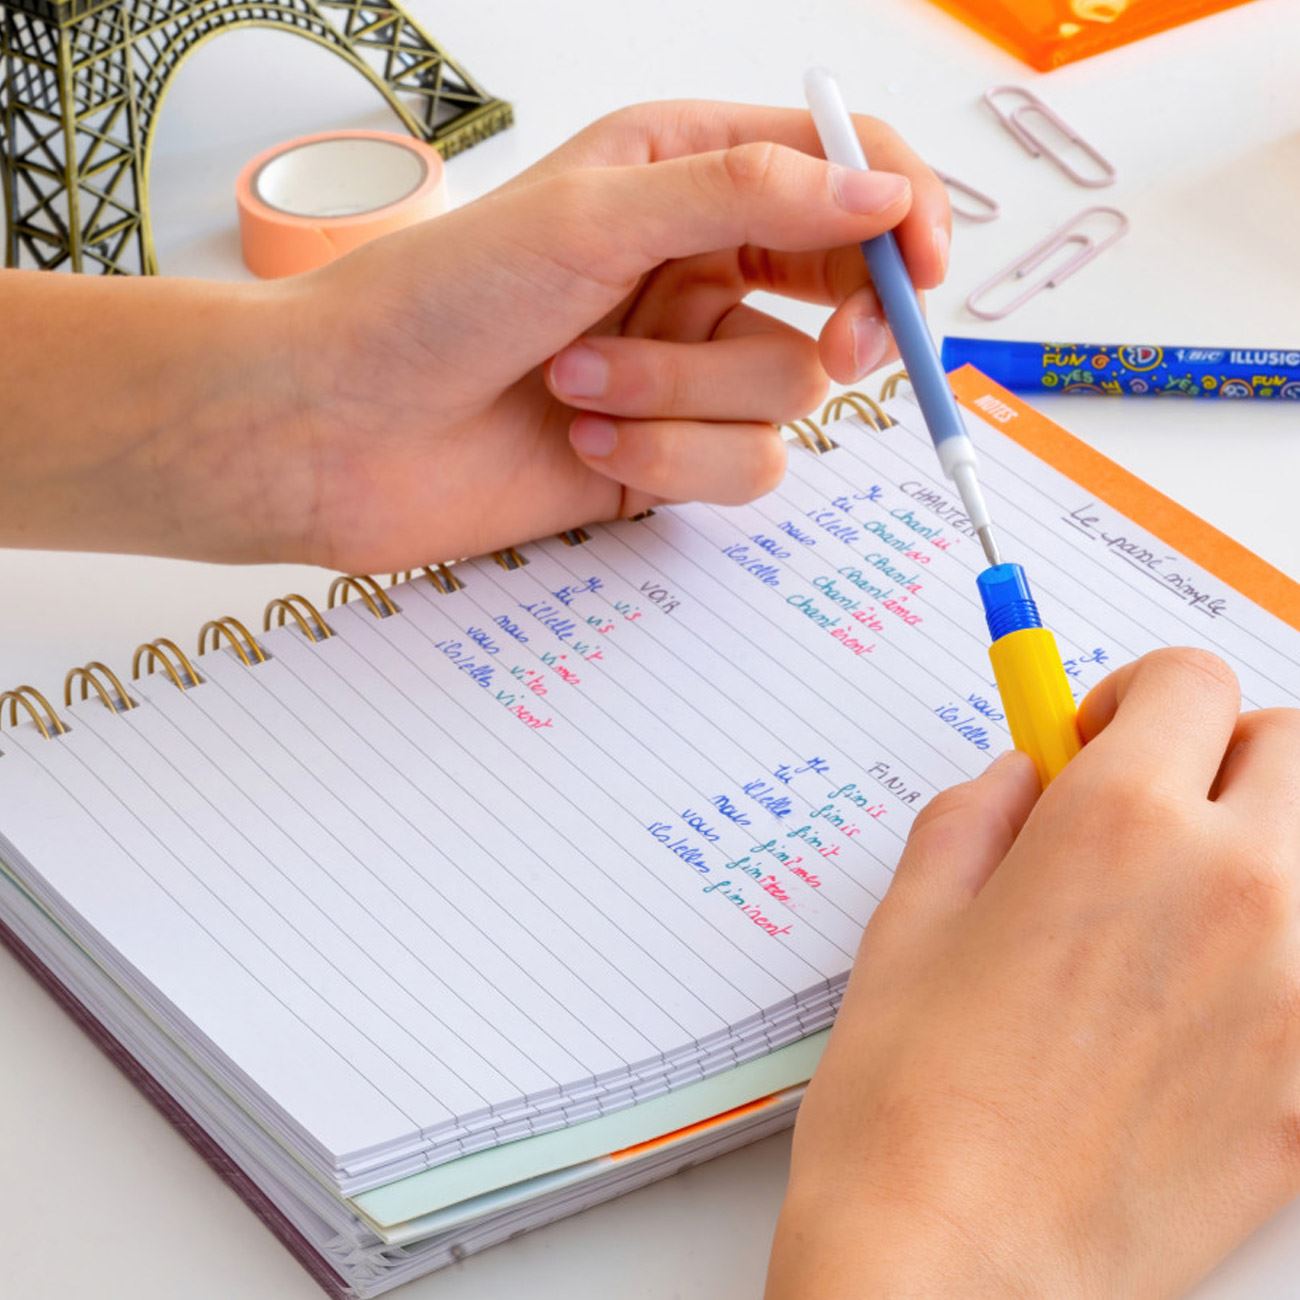 BIC ILLUSI
FUN
YES
YES
FUN
NOTES
Le passé simple
CHANTER
je chantai
tu chantas
il/elle chanta
nous chantâmes
vous chantâtes
ils/elles chantèrent
VOIR
je vis
tu vis
il/elle vit
nous vîmes
vous vîtes
ils/elles virent
je
tu
vous
ils/elles
FINIR
je finis
tu finis
il/elle finit
nous finîmes
vous finîtes
ils/elles finirent